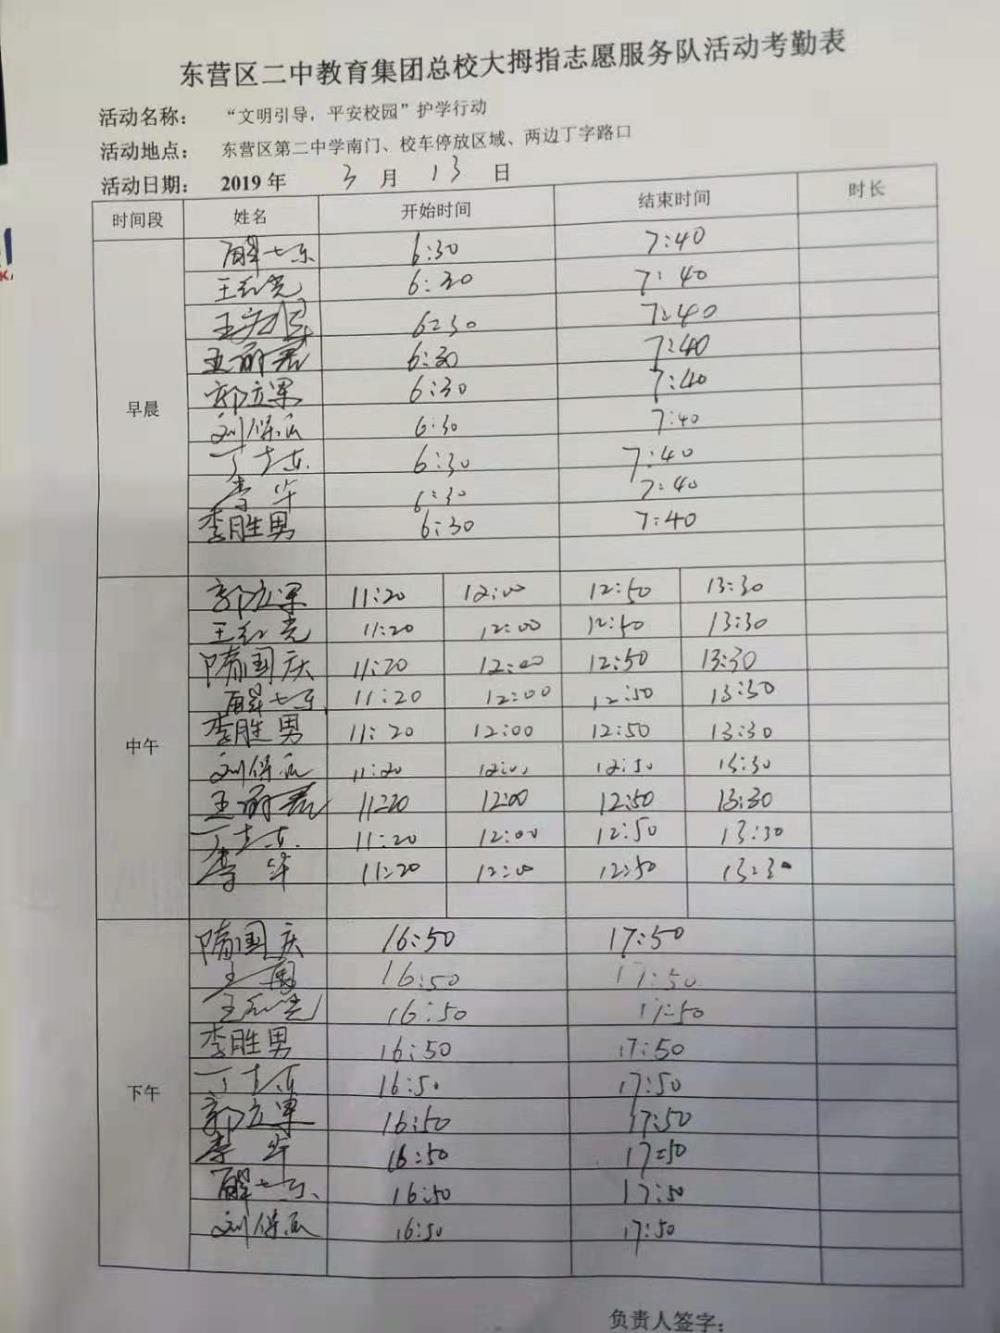 东营区二中教育集团总校大拇指志愿服务队活动考勤表
活动名称: “文明引导，平安校园”护学行动
活动地点: 东营区第二中学南门、校车停放区域、两边丁字路口
活动日期: 2019年 3月 13日
时间段 姓名 开始时间 结束时间 时长
早晨
解七东 6:30 7:40
王红亮 6:30 7:40
6:30 7:40
6:30 7:40
郭立果 6:30 7:40
刘保 6:30 7:40
丁志东 6:30 7:40
李华 6:30 7:40
李胜男 6:30 7:40
中午
郭立果 11:20 12:00 12:50 13:30
王红亮 11:20 12:00 12:50 13:30
隋国庆 11:20 12:00 12:50 13:30
解七东 11:20 12:00 12:50 13:30
李胜男 11:20 12:00 12:50 13:30
刘保 11:20 12:00 12:50 13:30
11:20 12:00 12:50 13:30
丁志东 11:20 12:00 12:50 13:30
李华 11:20 12:00 12:50 13:30
下午
隋国庆 16:50 17:50
王 16:50 17:50
王红亮 16:50 17:50
李胜男 16:50 17:50
丁志东 16:50 17:50
郭立果 16:50 17:50
李华 16:50 17:50
解七东 16:50 17:50
刘保 16:50 17:50
负责人签字: